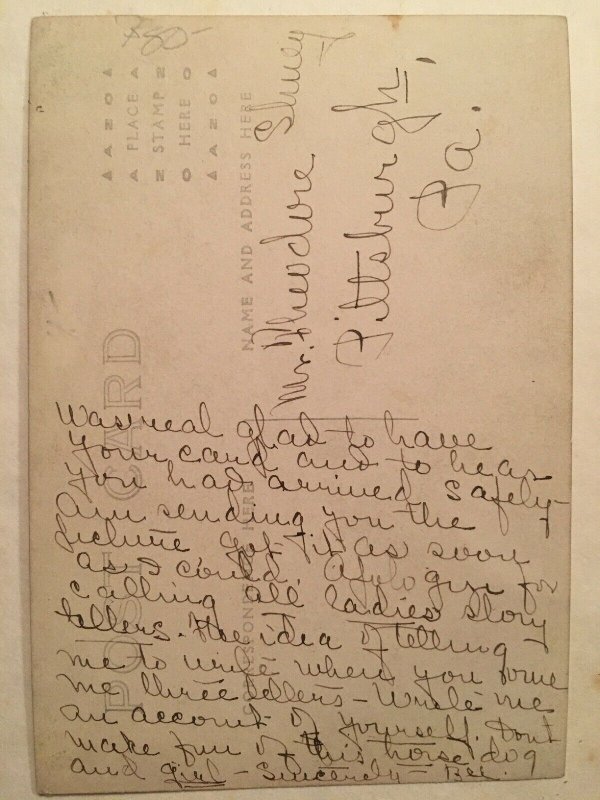 780-
AZO
PLACE
STAMP
HERE
AZO
POST CARD
NAME AND ADDRESS HERE
CORRESPONDENCE HERE
Mr. Theodore
Pittsburgh,
Pa.
Was real glad to have
your card and to hear
you had arrived safely -
Am sending you the
picture got it as soon
as I could. Apologize for
calling all ladies story
tellers. The idea of telling
me to write when you owe
me three letters - Write me
an account of yourself. Dont
make fun of this horse dog
and girl - Sincerely - Bee.